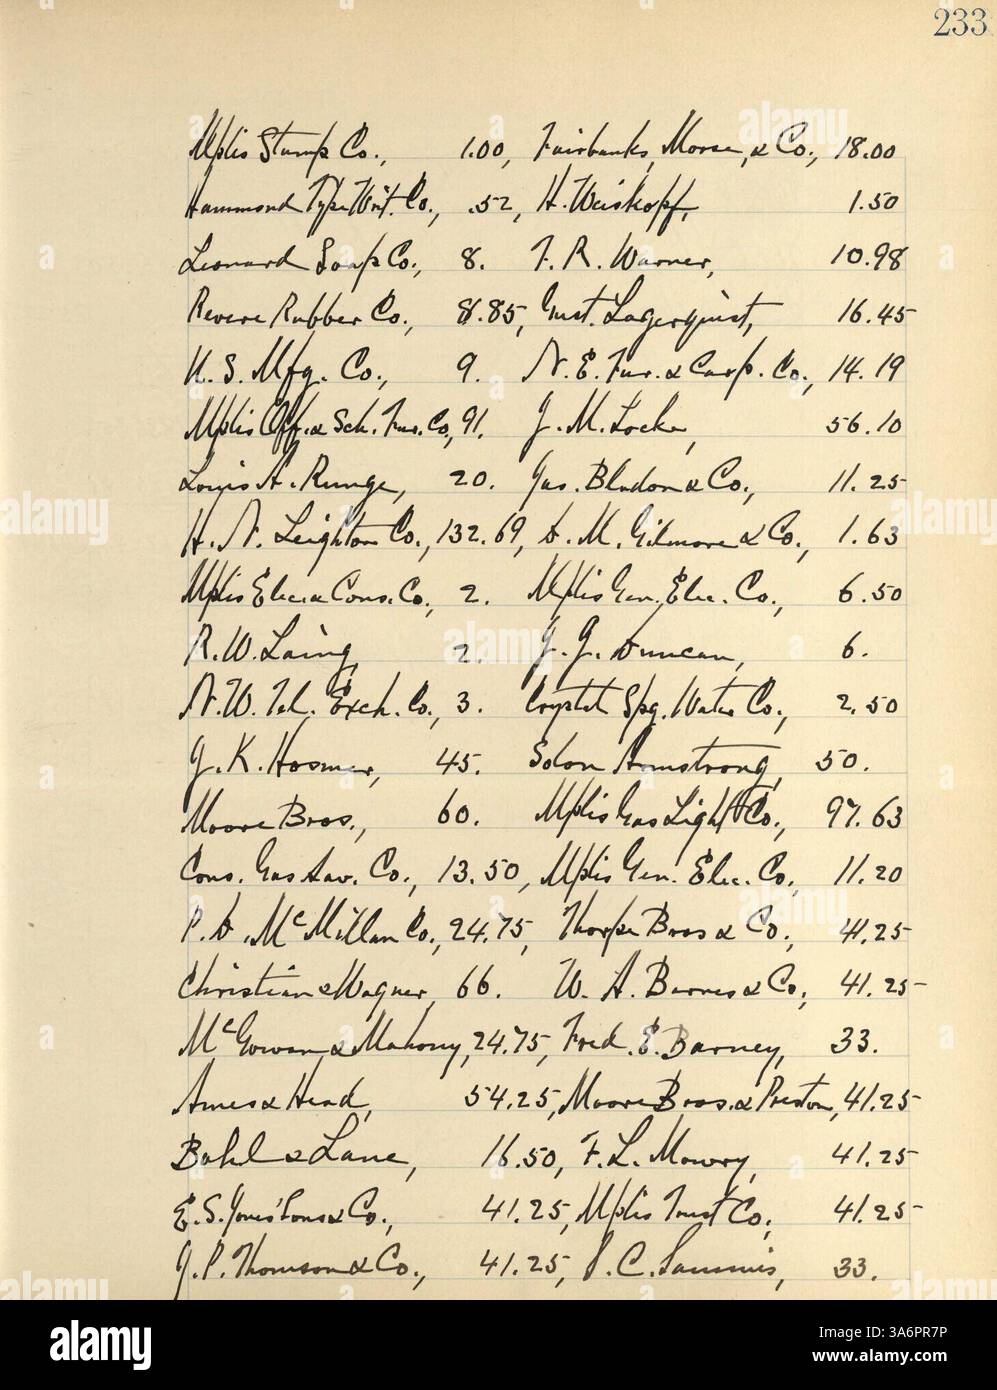 233
Mplis Stamp Co., 1.00, Fairbanks, Morse, & Co., 18.00
Hammond Type Writ. Co., .52, H. Weiskopf, 1.50
Leonard Soap Co., 8. F. R. Warner, 10.98
Revere Rubber Co., 8.85, Gust. Lagerquist, 16.45
U. S. Mfg. Co., 9. N. E. Fur. & Carp. Co., 14.19
Mplis Off. & Sch. Fur. Co., 91. J. M. Locke, 56.10
Louis A. Runge, 20. Jas. Bladon & Co., 11.25
H. N. Leighton Co., 132.69, D. M. Gilmore & Co., 1.63
Mplis Elec. & Cons. Co., 2. Mplis Gen. Elec. Co., 6.50
R. W. Laing, 2. J. J. Duncan, 6.
N. W. Tel. Exch. Co., 3. Crystal Spg. Water Co., 2.50
J. K. Hosmer, 45. Solon Armstrong, 50.
Moore Bros., 60. Mplis Gas Light Co., 97.63
Cons. Gas Sav. Co., 13.50, Mplis Gen. Elec. Co., 11.20
P. D. McMillan Co., 24.75, Thorpe Bros & Co., 41.25
Christian & Wagner, 66. W. A. Barnes & Co., 41.25
McGowan & Mahony, 24.75, Fred. E. Barney, 33.
Ames & Head, 54.25, Moore Bros. & Preston, 41.25
Bohl & Lane, 16.50, F. L. Mowry, 41.25
E. S. Jones' Sons & Co., 41.25, Mplis Trust Co., 41.25
J. P. Thomson & Co., 41.25, S. C. Sammis, 33.
alamy
Image ID: 3A6PR7P
www.alamy.com